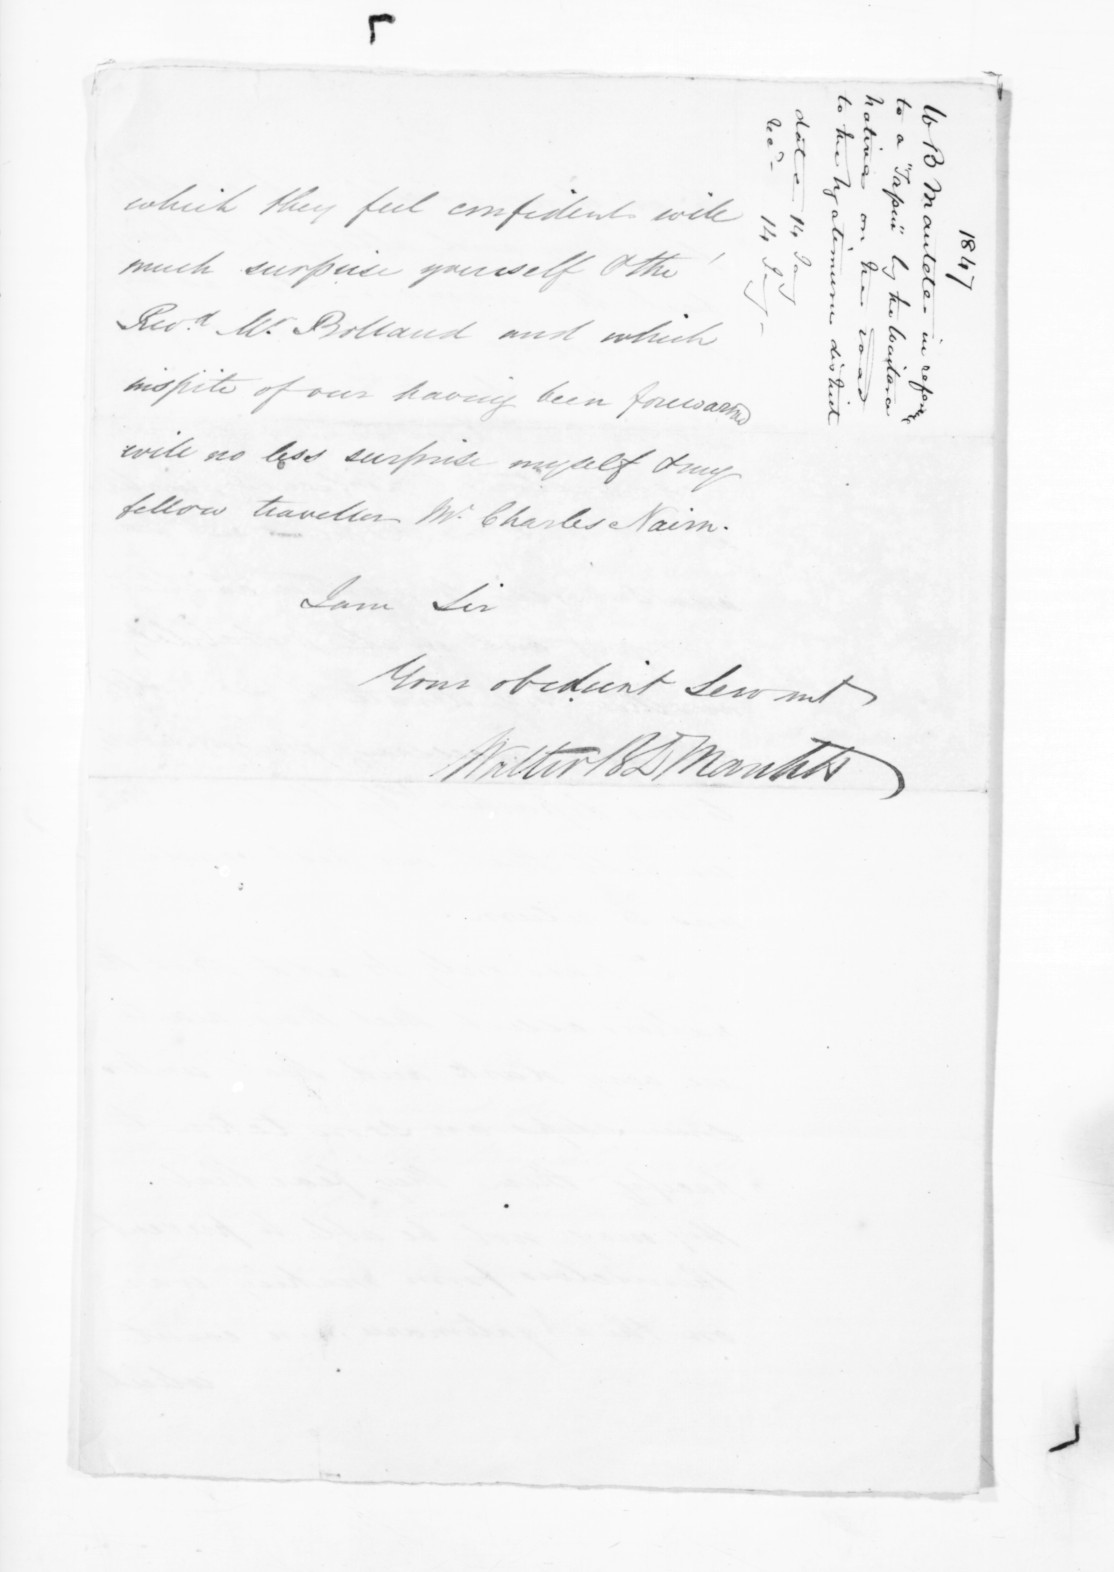 which they feel confident will
much surprise yourself & the
Revd. Mr Bolland and which
inspite of our having been forewarned
will no less surprise myself & my
fellow traveller Mr. Charles Nairn.
I am Sir
Your obedient Servant
Walter B D Mantell
1847
W B D Mantell in reference
to a "Tapu" by the
natives on the road
to the Ngatimuru district
date 14 Jany
recd 14 Jany